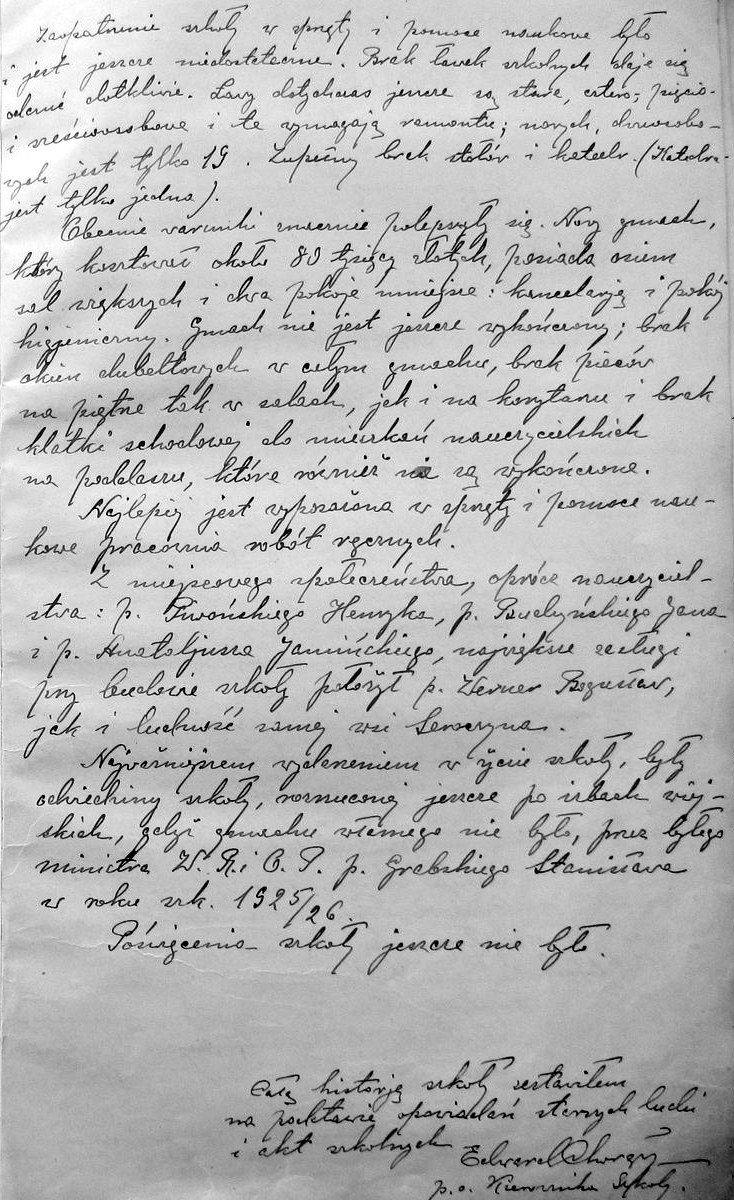 Zaopatrzenie szkoły w sprzęty i pomoce naukowe było
i jest jeszcze niedostateczne. Brak ławek szkolnych daje się
odczuć dotkliwie. Ławy dotychczas jeszcze są stare, cztero-, pięcio-
i sześcioosobowe i te wymagają remontu; nowych, dwuosobo-
wych jest tylko 19. Zupełny brak stołów i katedr. (Katedra-
jest tylko jedna).
Obecnie warunki znacznie polepszyły się. Nowy gmach,
który kosztował około 80 tysięcy złotych, posiada osiem
sal większych i dwa pokoje mniejsze: kancelarję i pokój
higjeniczny. Gmach nie jest jeszcze wykończony; brak
okien dubeltowych w całym gmachu, brak pieców
na piętrze tak w salach, jak i na korytarzu i brak
klatki schodowej do mieszkań nauczycielskich
na poddaszu, które również nie są wykończone.
Najlepiej jest wyposażona w sprzęty i pomoce nau-
kowe pracownia robót ręcznych.
Z miejscowego społeczeństwa, oprócz nauczyciel-
stwa: p. Piwońskiego Henryka, p. Budzyńskiego Jana
i p. Anatoljusza Jamińskiego, największe zasługi
przy budowie szkoły położył p. Werner Bogusław,
jak i ludność samej wsi Seroczyna.
Najważniejszem wydarzeniem w życiu szkoły, były
odwiedziny szkoły, rozrzuconej jeszcze po izbach wiej-
skich, gdyż gmachu własnego nie było, przez byłego
ministra W. R. i O. P. p. Grabskiego Stanisława
w roku szk. 1925/26.
Poświęcenia szkoły jeszcze nie było.
Całą historję szkoły zestawiłem
na podstawie opowiadań starszych ludzi
i akt szkolnych Edward
p. o. Kierownika Szkoły.